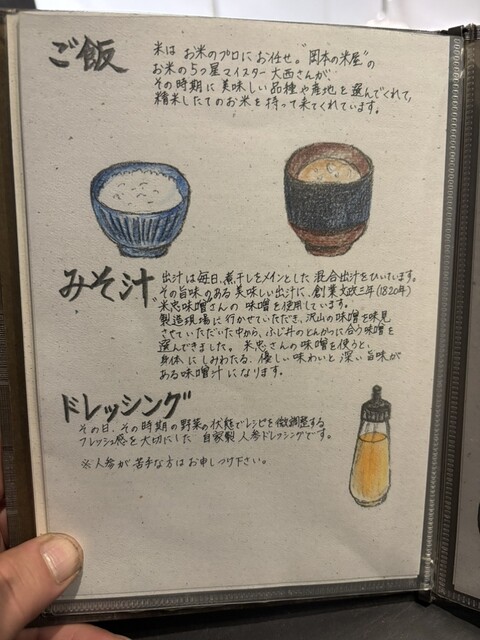 ご飯
米は お米のプロにお任せ。"岡本の米屋"の
お米の5つ星マイスター 大西さんが、
その時期に美味しい品種や産地を選んでくれて、
精米したてのお米を持って来てくれています。
みそ汁
出汁は毎日、煮干しをメインとした混合出汁をひいています。
その旨味のある美味しい出汁に、創業文政三年(1820年)
米忠味噌さんの味噌を使用しています。
製造現場に行かせていただき、沢山の味噌を味見
させていただいた中から、ふじ井のとんかつに合う味噌を
選んできました。米忠さんの味噌を使うと、
身体にしみわたる、優しい味わいと深い旨味が
ある味噌汁になります。
ドレッシング
その日、その時期の野菜の状態でレシピを微調整する
フレッシュ感を大切にした 自家製人参ドレッシングです。
※人参が苦手な方はお申しつけ下さい。